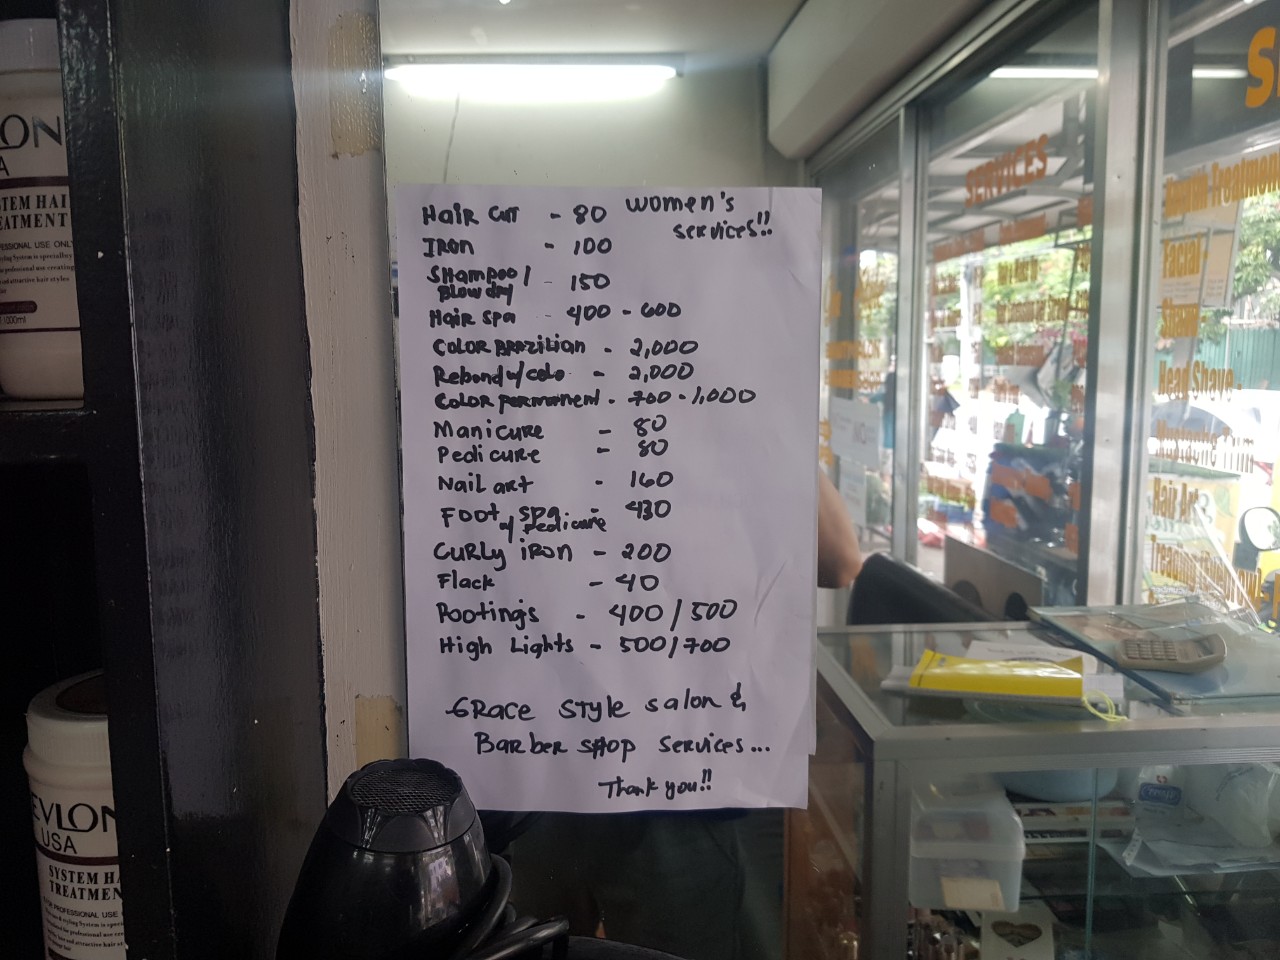 Hair cut - 80 women's
services!!
Iron - 100
Shampoo/
Blow dry - 150
Hair spa - 400 - 600
Color Brazilian - 2,000
Rebond w/ colo - 2,000
Color permanent - 700 - 1,000
Manicure - 80
Pedicure - 80
Nail art - 160
Foot spa - 430
w/ pedicure
Curly iron - 200
Flack - 40
Rootings - 400/500
High Lights - 500/700
Grace Style salon &
Barber shop services...
Thank you!!
SERVICES
Facial
Head Shave -
Hair Art
USA
SYSTEM HA
TREATMEN